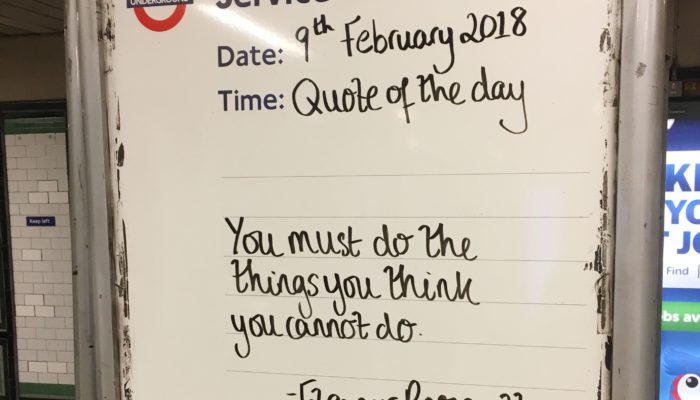 UNDERGROUND
Service
Date: 9th February 2018
Time: Quote of the day
You must do the
things you think
you cannot do.
Keep left
Find